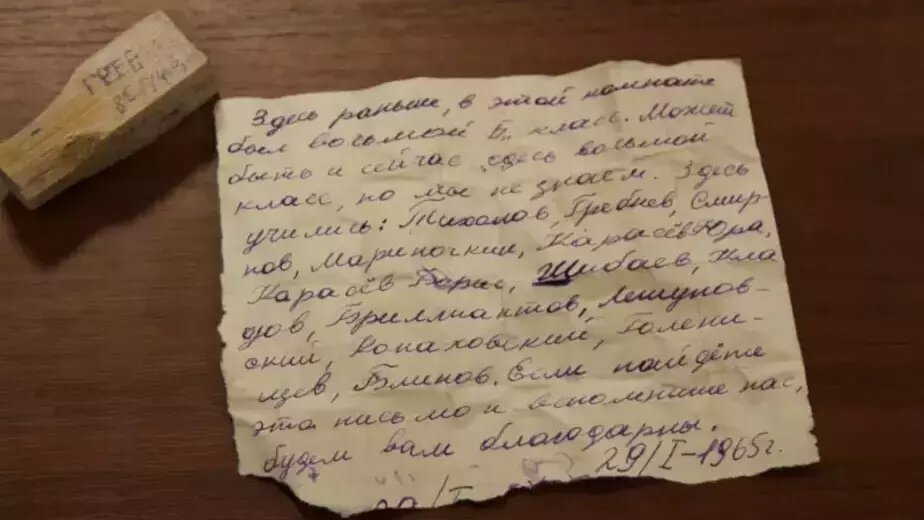 ГРЕБ
Здесь раньше, в этой комнате
был восьмой Б, класс. Может
быть и сейчас здесь восьмой
класс, но мы не знаем. Здесь
учились: Тихолов, Гребнев, Смир-
нов, Марипочкин, Карасёв Юра,
Карасёв Борис, Шибаев, Кла
дов, Бриллиантов, Лешуков-
ский, Конаховский, Голени-
щев, Блинов. Если найдёте
это письмо и вспомните нас,
будем вам благодарны.
29/I-1965г.